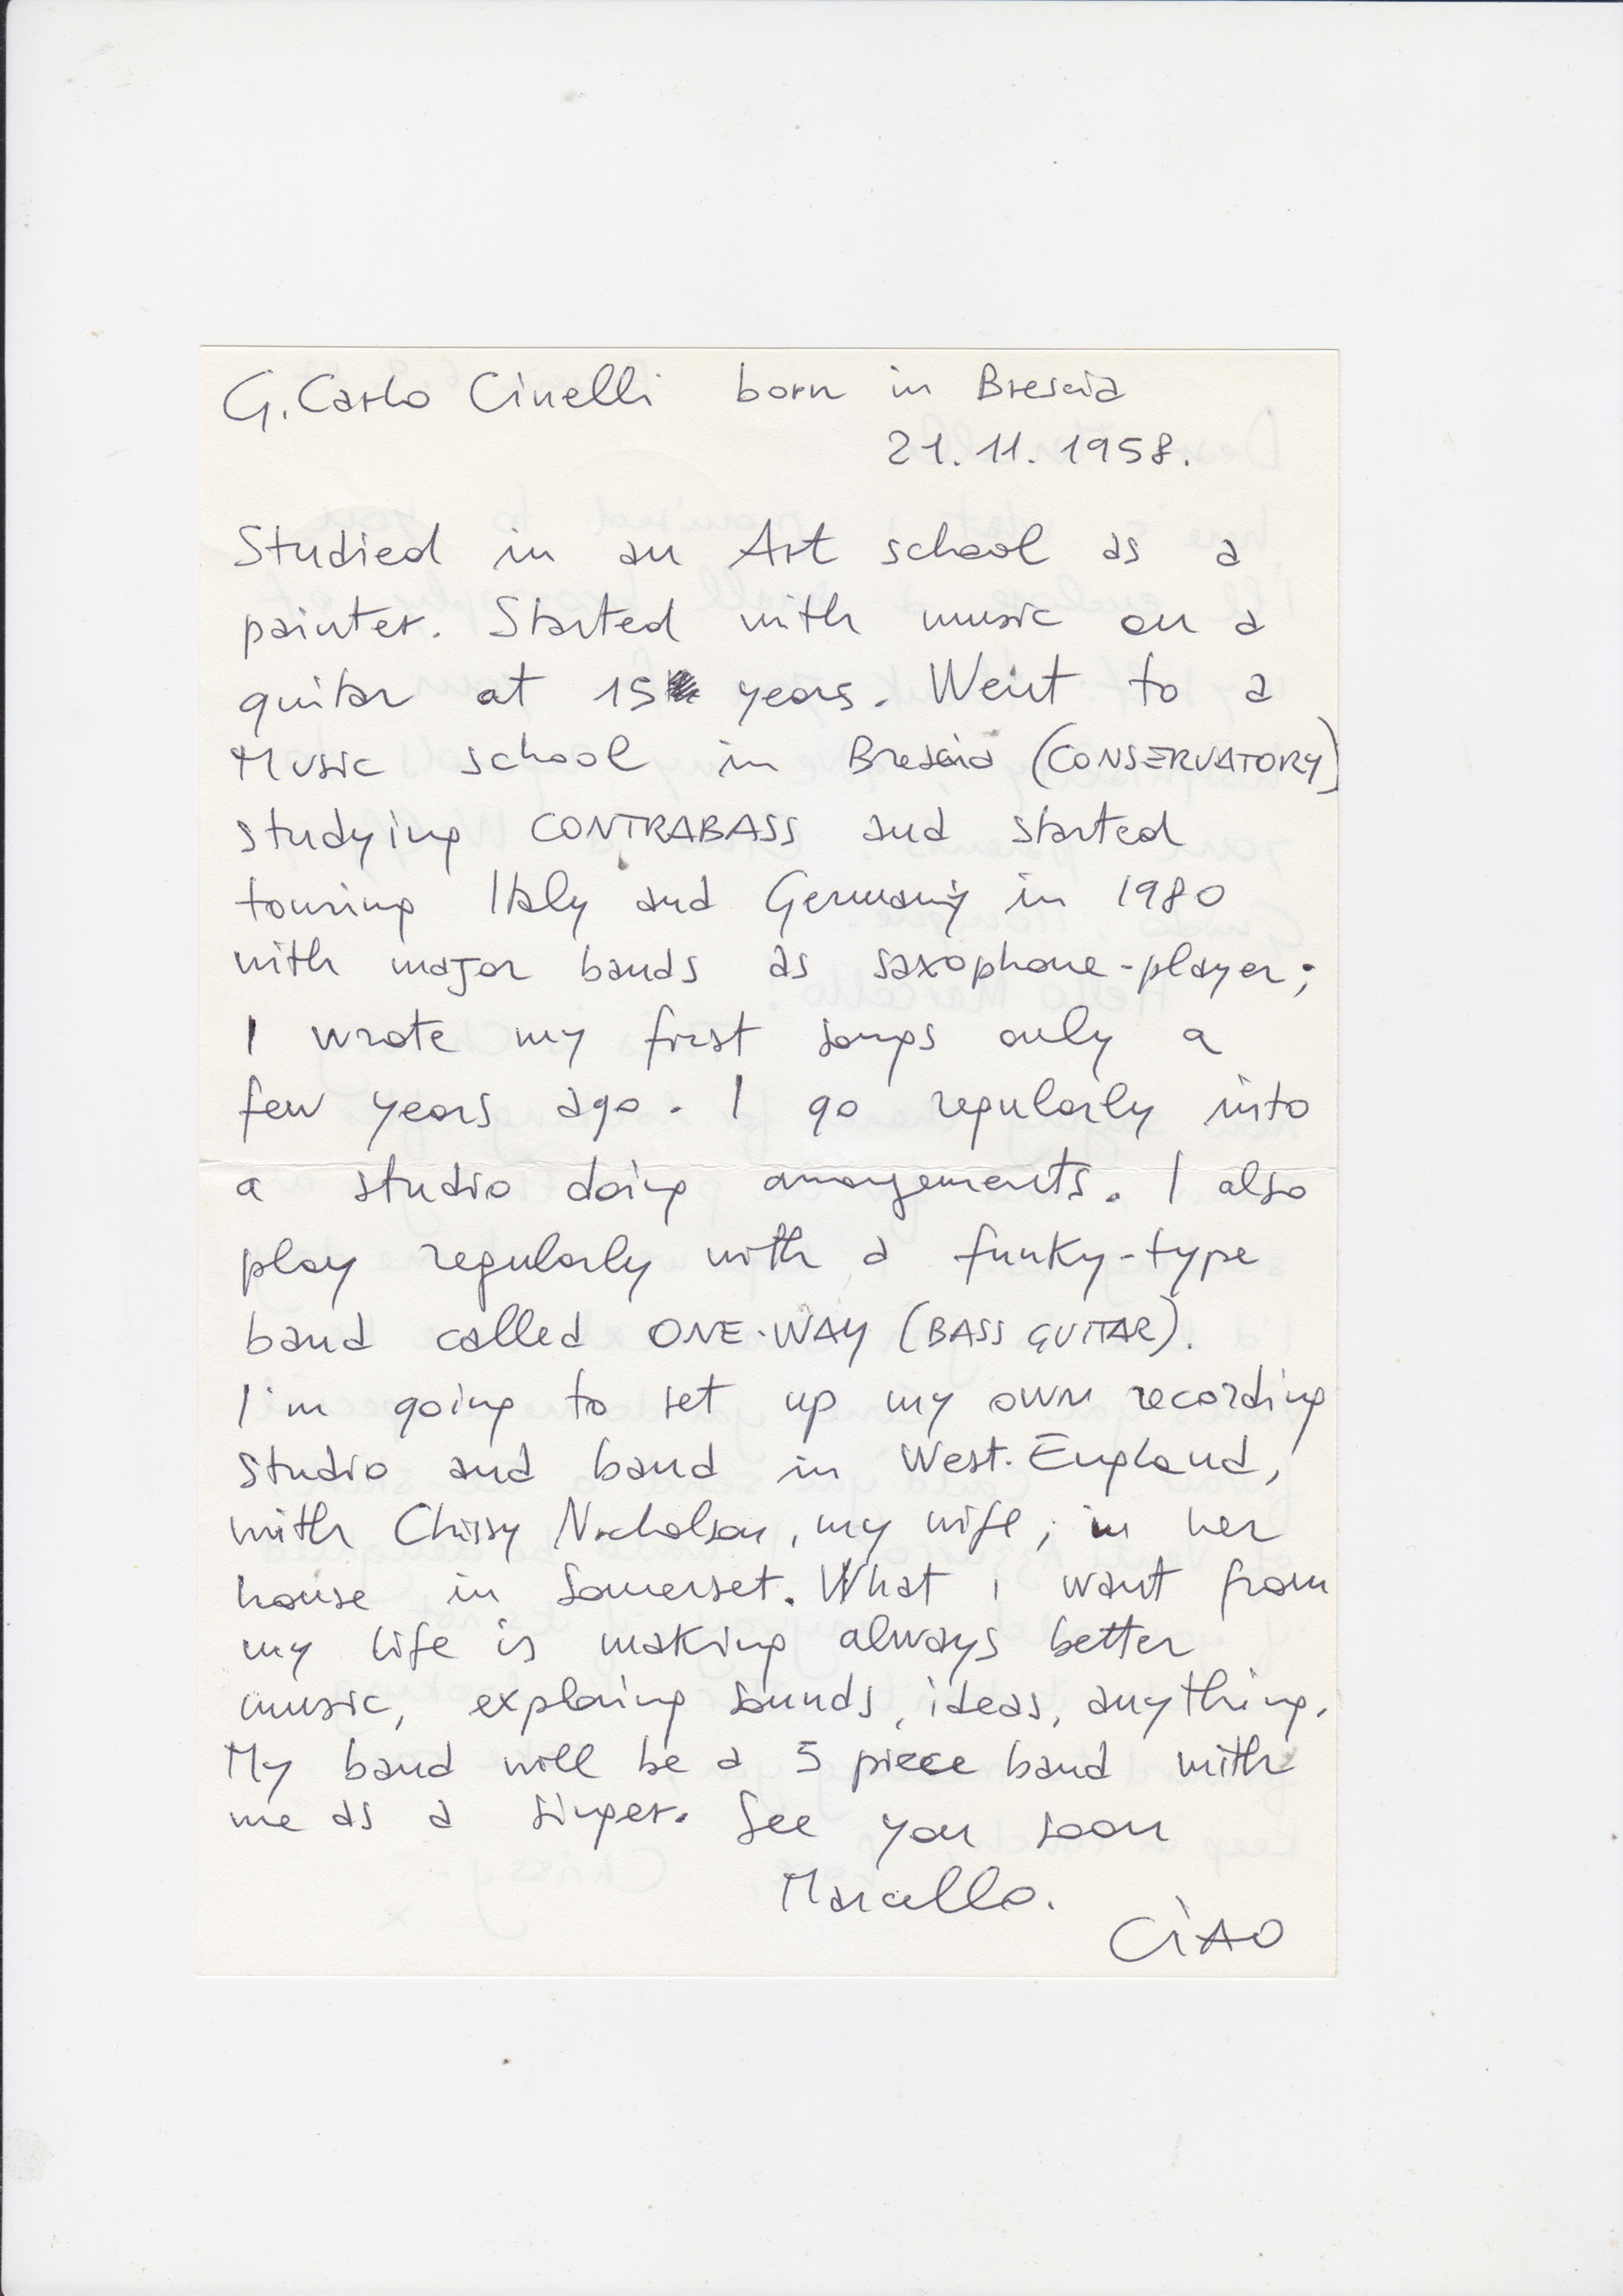 G. Carlo Cinelli born in Brescia
21.11.1958.
Studied in an Art school as a
painter. Started with music on a
guitar at 15 years. Went to a
Music school in Brescia (CONSERVATORY)
studying CONTRABASS and started
touring Italy and Germany in 1980
with major bands as saxophone-player;
I wrote my first songs only a
few years ago. I go regularly into
a studio doing arrangements. I also
play regularly with a funky-type
band called ONE-WAY (BASS GUITAR).
I'm going to set up my own recording
studio and band in West-England,
with Chrissy Nicholson, my wife, in her
house in Somerset. What i want from
my life is making always better
music, exploring sounds, ideas, anything.
My band will be a 5 piece band with
me as a singer. See you soon
Marcello.
CIAO